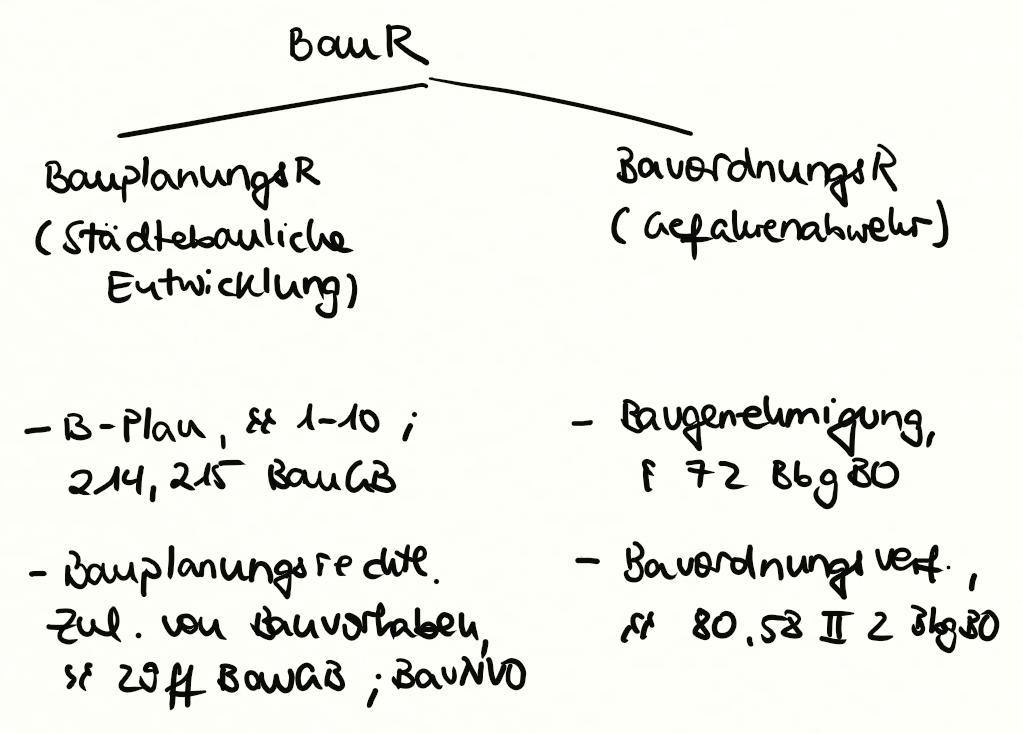 BauR
BauplanungsR
(Städtebauliche
Entwicklung)
- B-Plan, §§ 1-10 ;
214, 215 BauGB
- Bauplanungsrechtl.
Zul. von Bauvorhaben,
§§ 29 ff BauGB ; BauNVO
BauordnungsR
(Gefahrenabwehr)
- Baugenehmigung,
§ 72 BbgBO
- Bauordnungsverf.,
§§ 80, 58 II 2 BbgBO